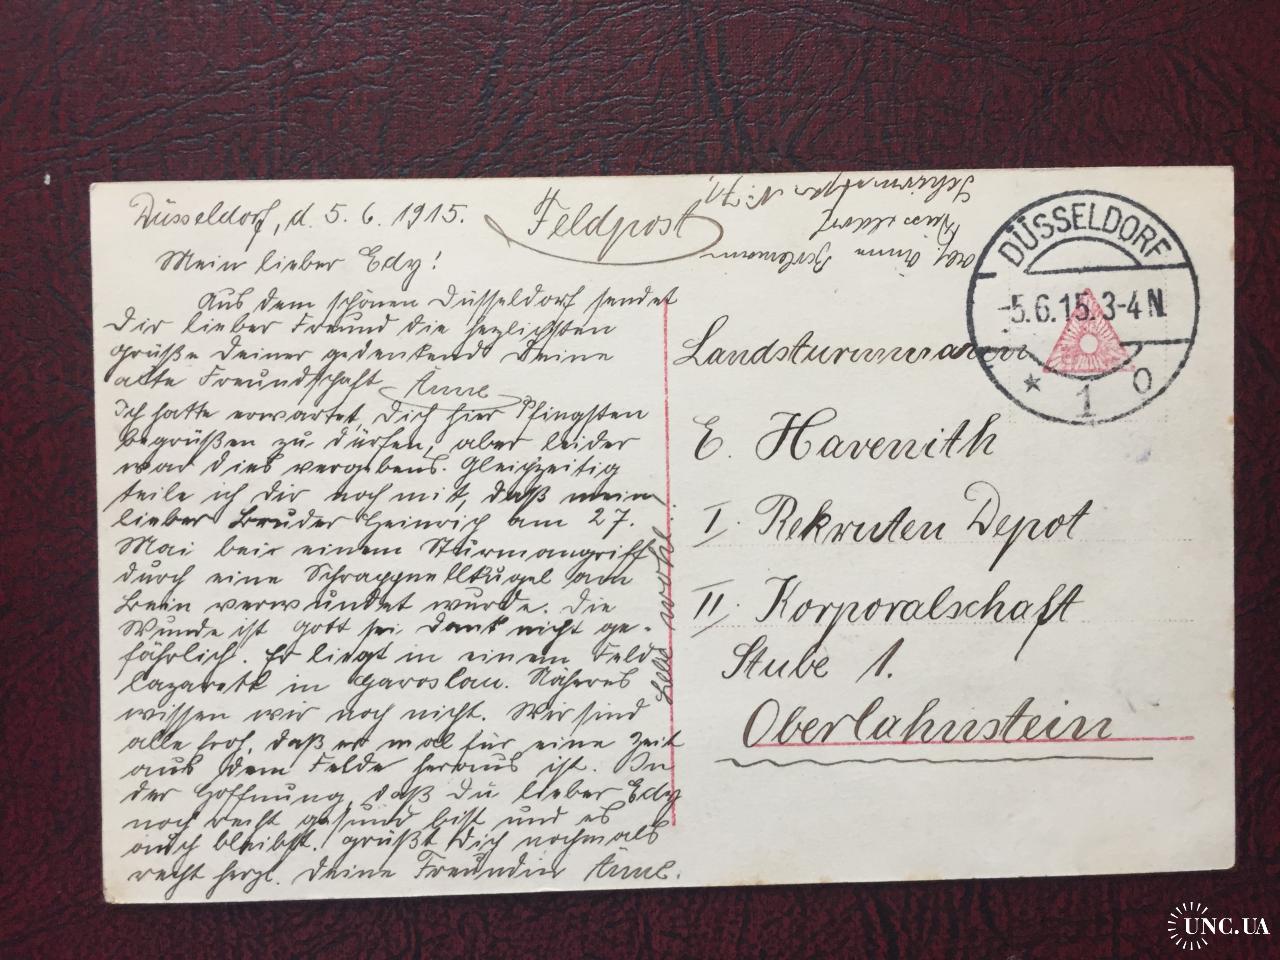 Düsseldorf, d. 5. 6. 1915.
Feldpost
Mein lieber Edy!
Aus dem schönen Düsseldorf sendet
Dir lieber Freund die herzlichsten
Grüße Deiner gedenkend Deine
alte Freundschaft Änne
Ich hatte erwartet, Dich hier Pfingsten
begrüßen zu dürfen, aber leider
war dies vergebens. Gleichzeitig
teile ich Dir noch mit, daß mein
lieber Bruder Heinrich am 27.
Mai bei einem Sturmangriff
durch eine Schrappnellkugel am
Bein verwundet wurde. Die
Wunde ist Gott sei Dank nicht ge-
fährlich. Er liegt in einem Feld
lazarett in Jaroslau. Näheres
wissen wir noch nicht. Wir sind
alle froh, daß er mal für eine Zeit
aus dem Felde heraus ist. In
der Hoffnung, daß Du lieber Edy
noch recht gesund bist und es
auch bleibst. Grüßt Dich nochmals
recht herzl. Deine Freundin Änne.
Lebe wohl!
Abs. Änne
Düsseldorf
N. 71
Landsturmmann
E. Havenith
I. Rekruten Depot
II. Korporalschaft
Stube 1.
Oberlahnstein
DÜSSELDORF
-5.6.15.3-4N.
* 1 o
UNC.UA